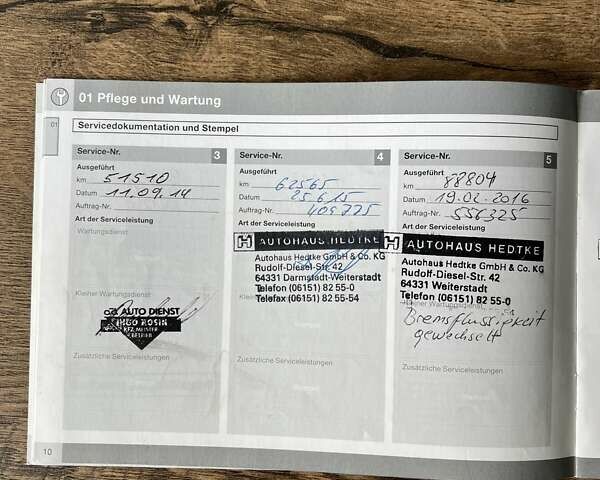 01 Pflege und Wartung
01
Servicedokumentation und Stempel
Service-Nr. 3
Ausgeführt
km 51510
Datum 11.09.14
Auftrag-Nr.
Art der Serviceleistung
Wartungsdienst
Kleiner Wartungsdienst
ad AUTO DIENST
INGO ROSIN
KFZ MEISTER
BETRIEB
Zusätzliche Serviceleistungen
Service-Nr. 4
Ausgeführt
km 62565
Datum 25.6.15
Auftrag-Nr. 409775
Art der Serviceleistung
H AUTOHAUS HEDTKE
Autohaus Hedtke GmbH & Co. KG
Rudolf-Diesel-Str. 42
64331 Darmstadt-Weiterstadt
Telefon (06151) 82 55-0
Telefax (06151) 82 55-54
Zusätzliche Serviceleistungen
Service-Nr. 5
Ausgeführt
km 88804
Datum 19.02.2016
Auftrag-Nr. 556325
Art der Serviceleistung
H AUTOHAUS HEDTKE
Autohaus Hedtke GmbH & Co. KG
Rudolf-Diesel-Str. 42
64331 Weiterstadt
Telefon (06151) 82 55-0
Kleiner Wartungsdienst
Bremsflüssigkeit
gewechselt
Zusätzliche Serviceleistungen
10